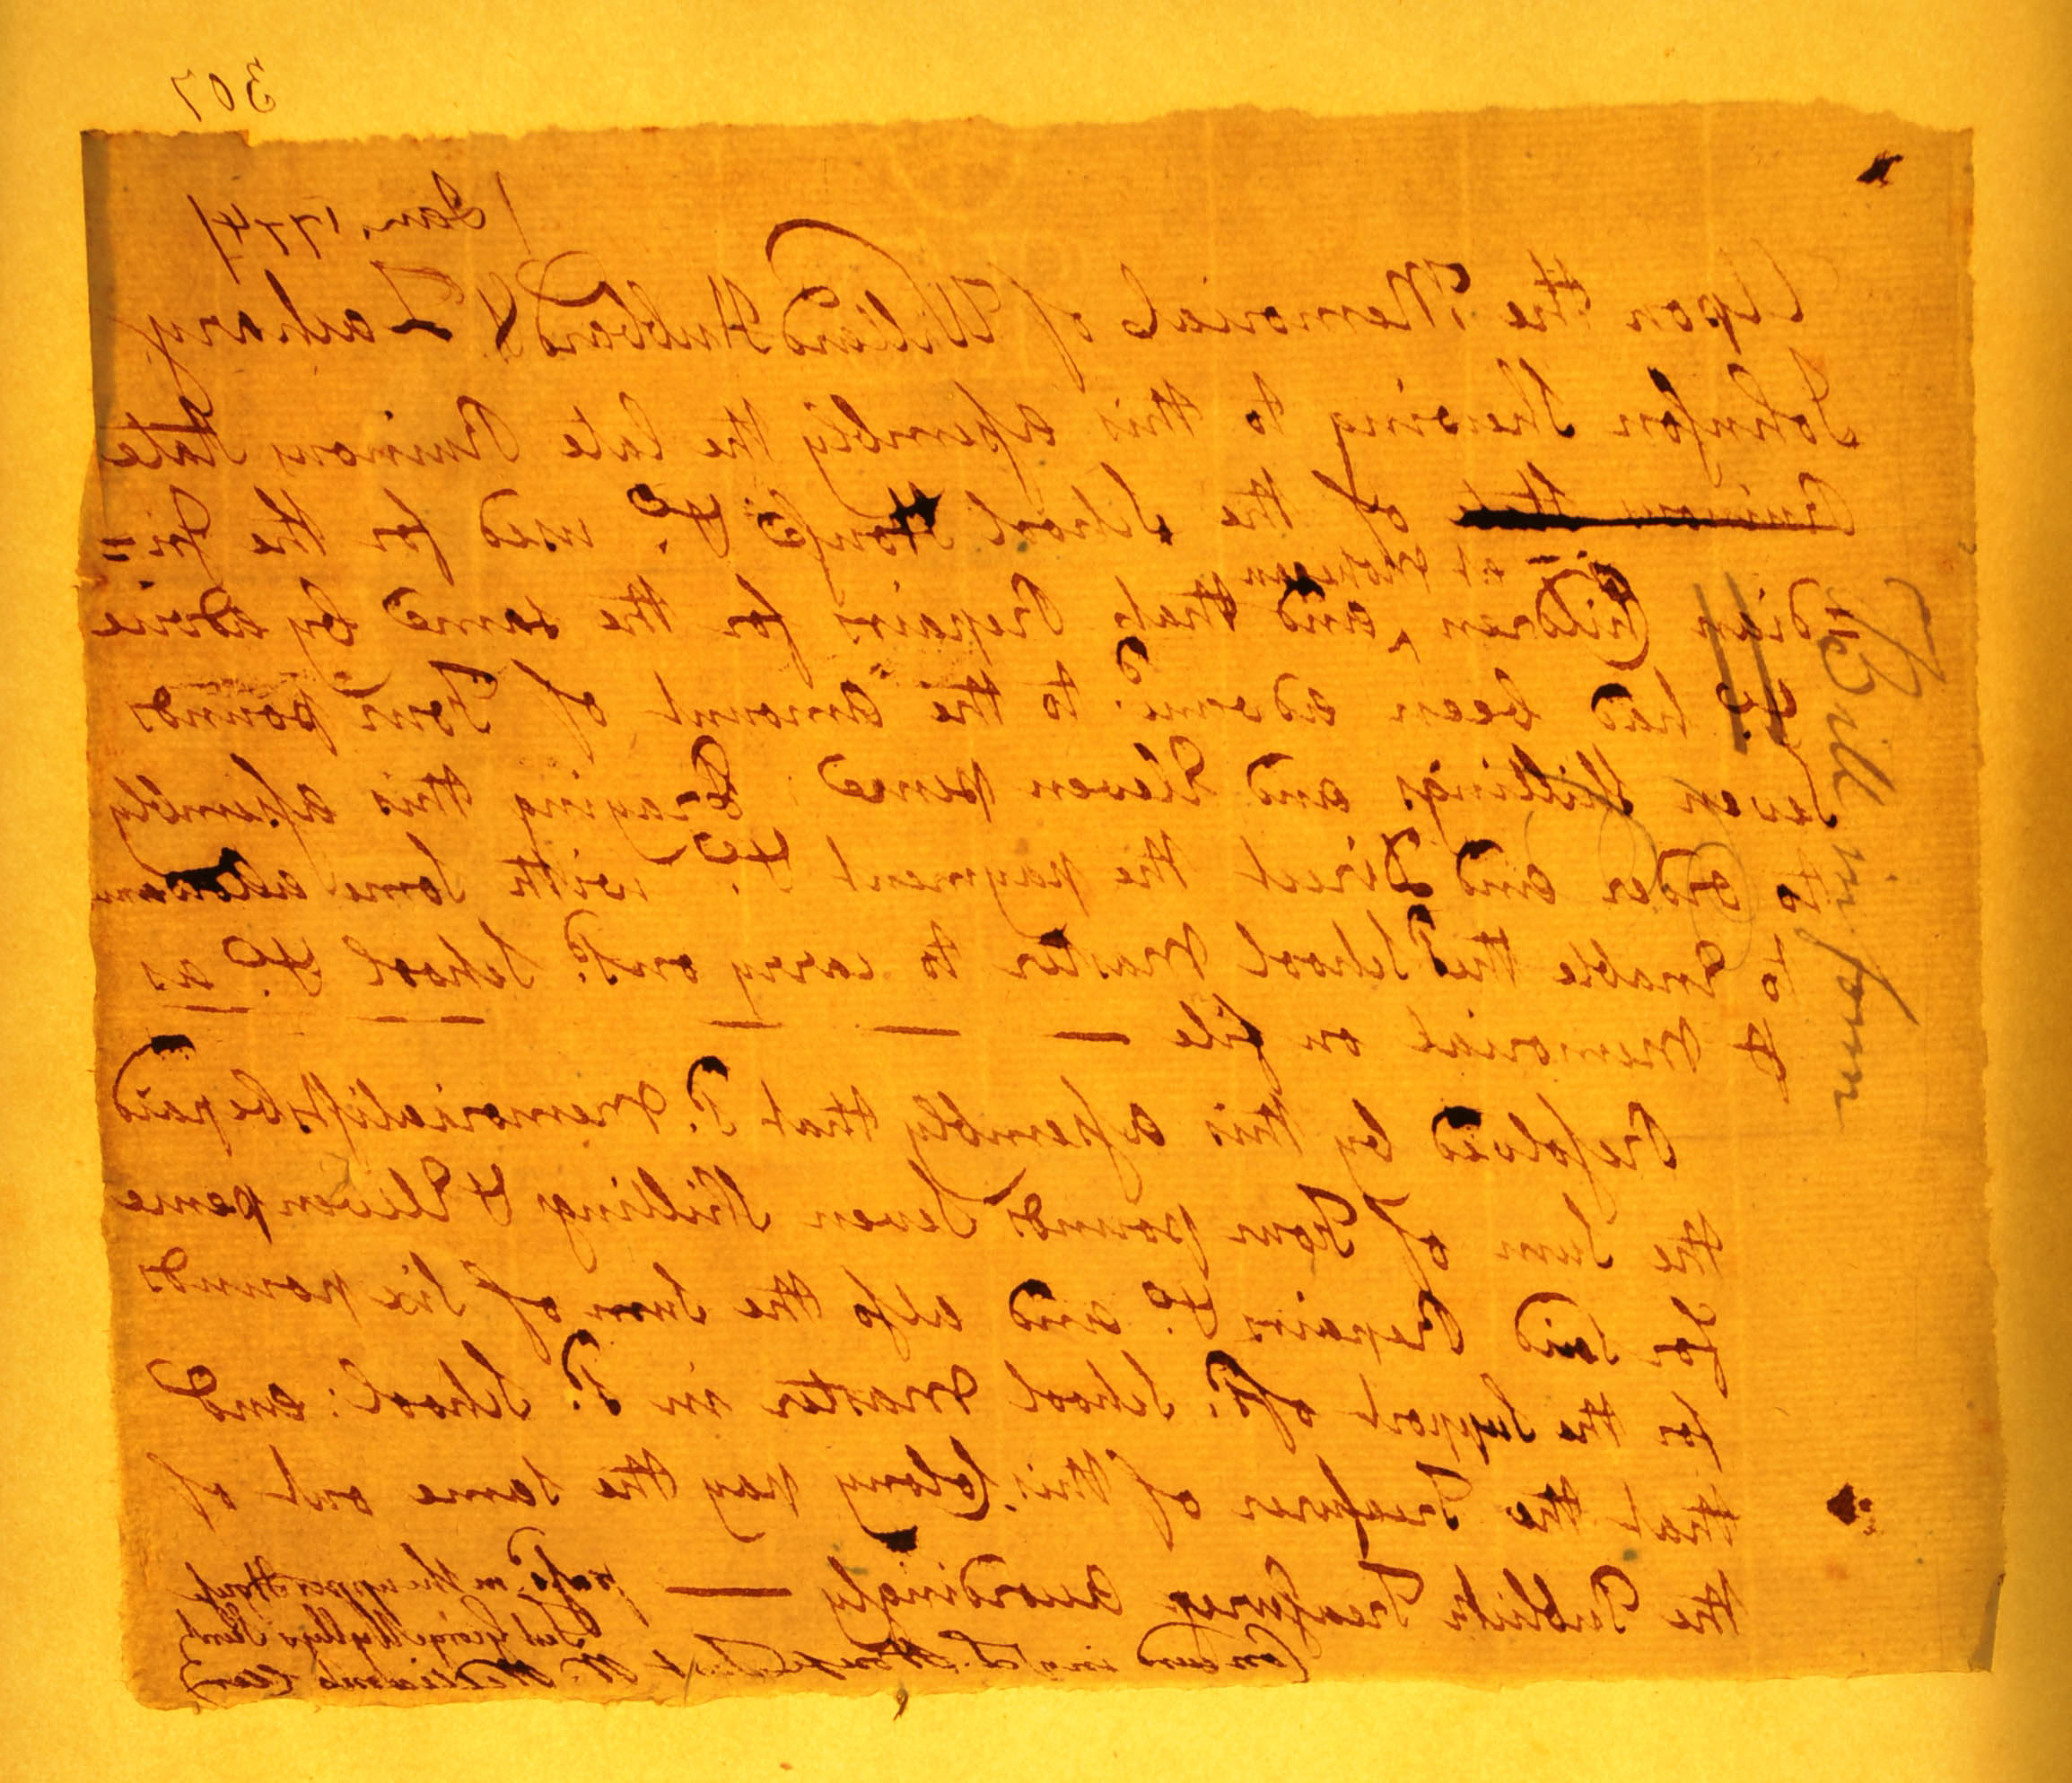 307
Jan. 1774
Upon the Memorial of Willard Hubbard & Zachary
Johnson Shewing to this assembly the late Ruinony State
of the School House &c. used for the In=
dian Children, and that Repairs for the same by advice
at Mohegan
&c. had been advanc'd to the amount of Four pounds
Seven Shillings and Eleven pence Praying this assembly
to order and Direct the payment &c. with Some
to Enable the School Master to carry on sd. School &c. as
memorial on file
Resolved by this assembly that sd. Memorialists be paid
the Sum of Four pounds Seven Shilling & Eleven pence
for said Repairs &c. and also the Sum of Six pounds
for the Support of sd. School Master in sd. School: and
that the Treasurer of this Colony pay the same out of
the Publick Treasurey accordingly
passd. in the upper House
Test George Wyllys Secret
Concurd in ye. L. House Test W. Williams Clerk
Bill in form